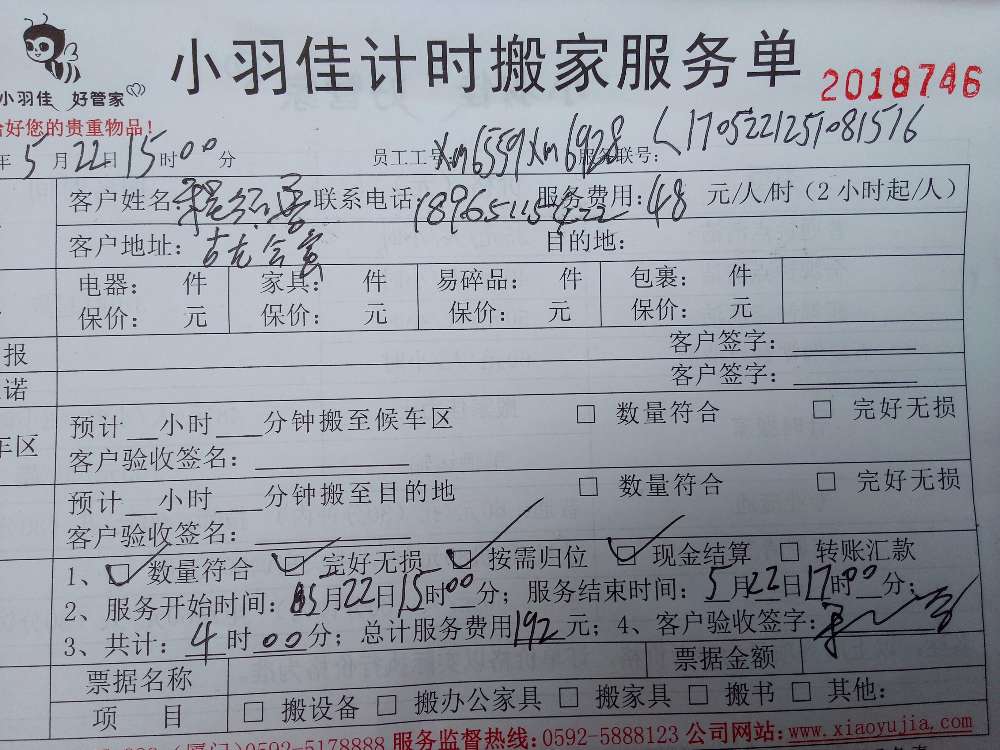 小羽佳计时搬家服务单
2018746
小羽佳 好管家
好您的贵重物品！
年5月22日15时00分 员工工号：Xm6559Xm6928 服务联号：L1705221251081516
客户姓名 联系电话： 服务费用：48 元/人/时（2小时起/人）
客户地址： 目的地：
电器： 件 家具： 件 易碎品： 件 包裹： 件
保价： 元 保价： 元 保价： 元 保价： 元
报 客户签字：
诺 客户签字：
预计__小时___分钟搬至候车区 □ 数量符合 □ 完好无损
车区
客户验收签名：
预计__小时___分钟搬至目的地 □ 数量符合 □ 完好无损
客户验收签名：
1、☑ 数量符合 ☑ 完好无损 ☑ 按需归位 ☑ 现金结算 □ 转账汇款
2、服务开始时间：05月22日15时00分；服务结束时间：5月22日17时00分；
3、共计：4时00分；总计服务费用192元；4、客户验收签字：
票据名称 票据金额
项 目 □ 搬设备 □ 搬办公家具 □ 搬家具 □ 搬书 □ 其他：
(厦门)0592-5178888 服务监督热线：0592-5888123 公司网站：www.xiaoyujia.com